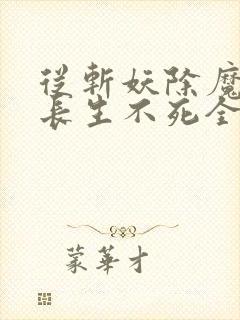 從斬妖除魔
長生不死全
蒙華才